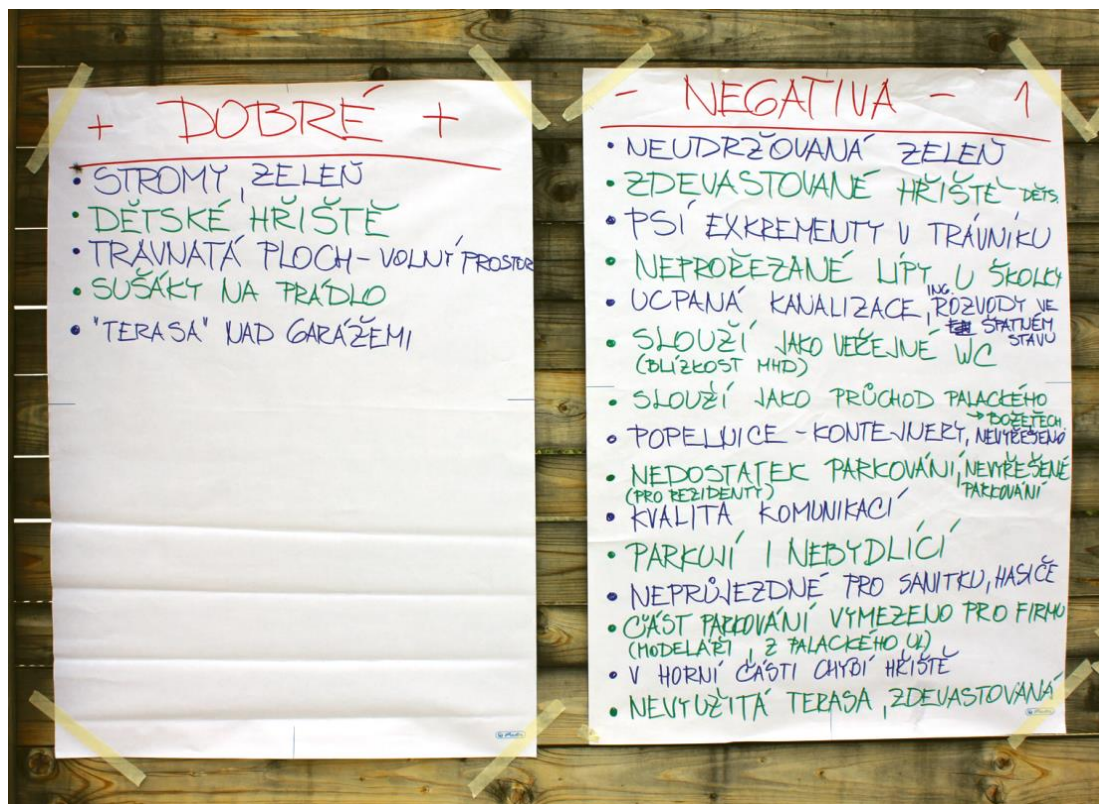 + DOBRÉ +
• STROMY, ZELEŇ
• DĚTSKÉ HŘIŠTĚ
• TRAVNATÁ PLOCH - VOLNÝ PROSTOR
• SUŠÁKY NA PRÁDLO
• "TERASA" NAD GARÁŽEMI
- NEGATIVA - 1
• NEUDRŽOVANÁ ZELEŇ
• ZDEVASTOVANÉ HŘIŠTĚ DĚTS.
• PSÍ EXKREMENTY V TRÁVNÍKU
• NEPROŘEZANÉ LÍPY U ŠKOLKY
• UCPANÁ KANALIZACE, ING. ROZVODY VE
ŠPATNÉM
STAVU
• SLOUŽÍ JAKO VEŘEJNÉ WC
(BLÍZKOST MHD)
• SLOUŽÍ JAKO PRŮCHOD PALACKÉHO
→ BOŽETĚCH.
• POPELNICE - KONTEJNERY, NEVYŘEŠENO
• NEDOSTATEK PARKOVÁNÍ, NEVYŘEŠENÉ
(PRO REZIDENTY) PARKOVÁNÍ
• KVALITA KOMUNIKACÍ
• PARKUJÍ I NEBYDLÍCÍ
• NEPRŮJEZDNÉ PRO SANITKU, HASIČE
• ČÁST PARKOVÁNÍ VYMEZENO PRO FIRMU
(MODELÁŘI, Z PALACKÉHO UL)
• V HORNÍ ČÁSTI CHYBÍ HŘIŠTĚ
• NEVYUŽITÁ TERASA, ZDEVASTOVANÁ